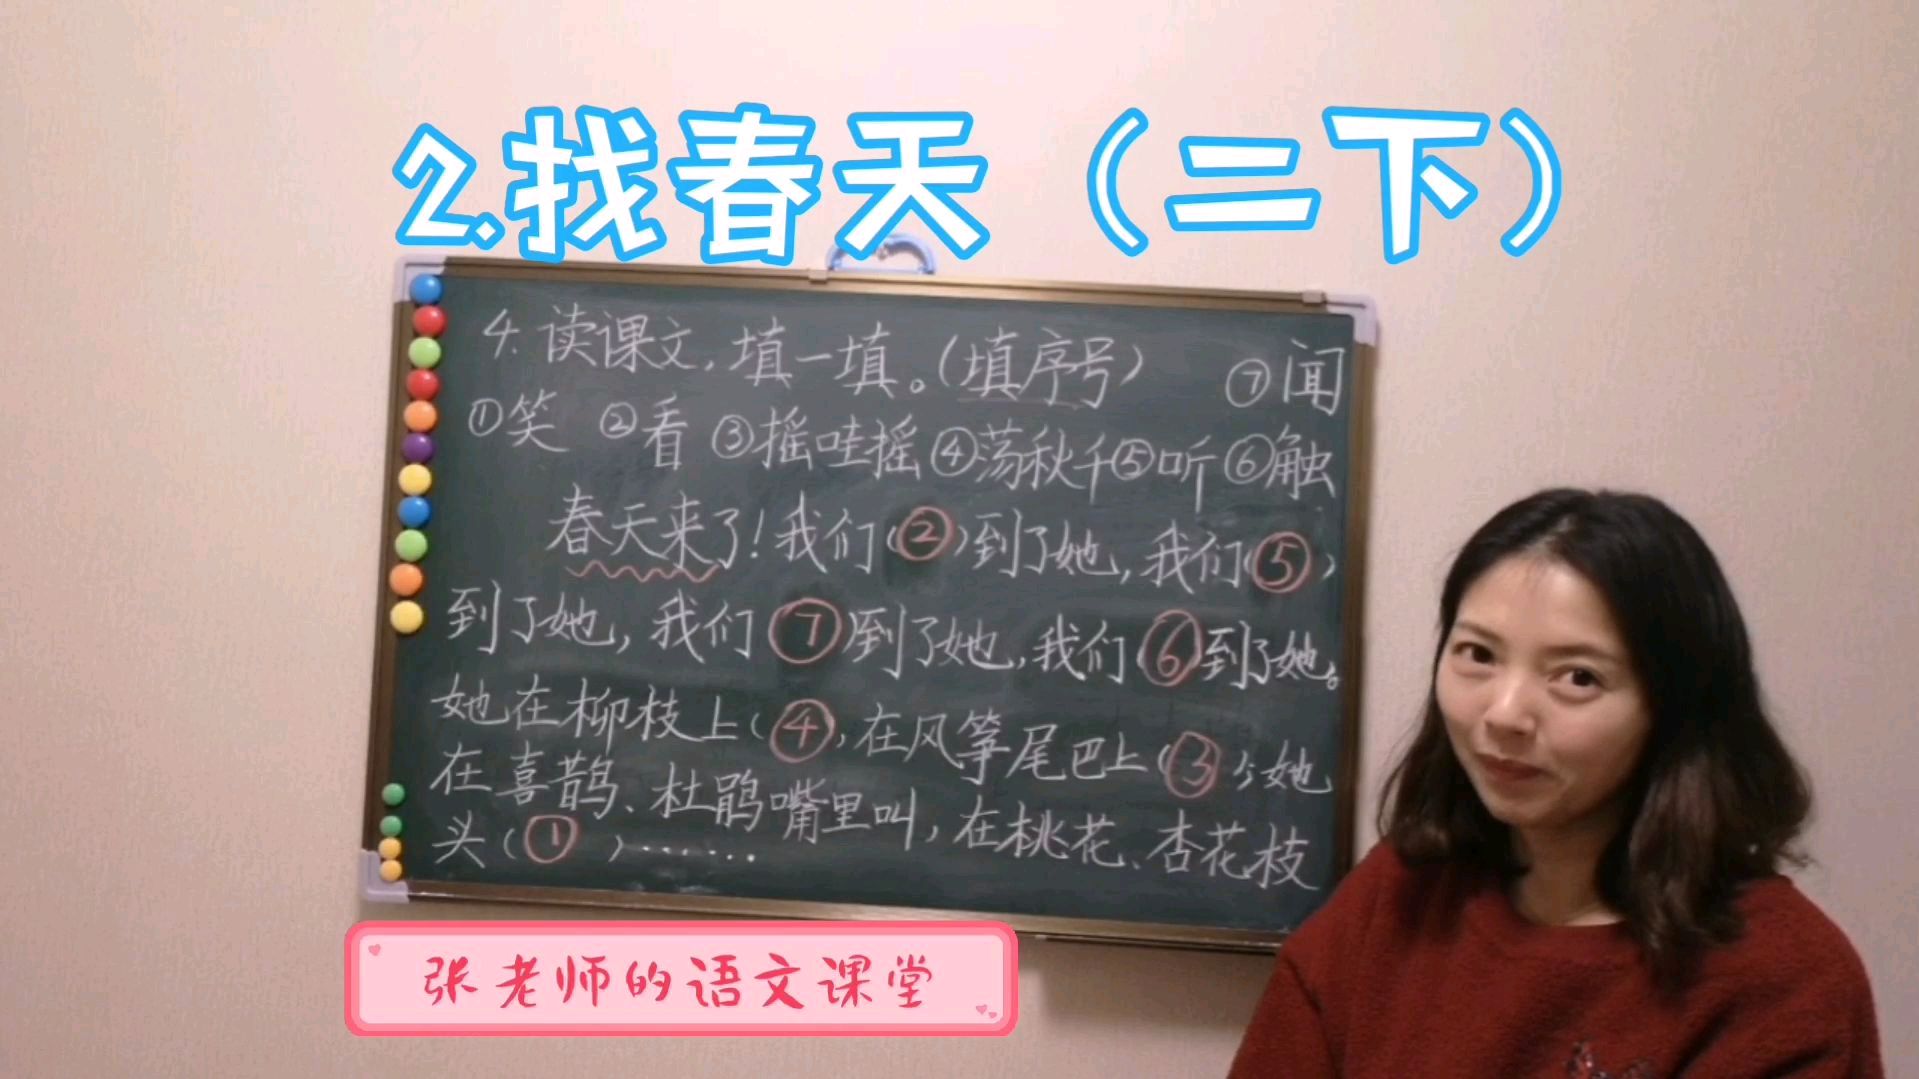 2.找春天（二下）
4.读课文,填一填。(填序号) ⑦闻
①笑 ②看 ③摇哇摇 ④荡秋千 ⑤听 ⑥触
春天来了!我们(②)到了她,我们(⑤)
到了她,我们(⑦)到了她,我们(⑥)到了她。
她在柳枝上(④),在风筝尾巴上(③);她
在喜鹊、杜鹃嘴里叫,在桃花、杏花枝
头(①)……
张老师的语文课堂